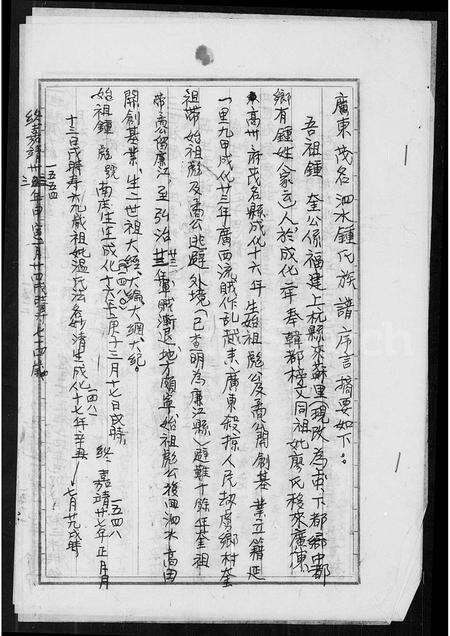 廣東茂名泗水鍾氏族譜序言摘要如下。
吾祖鍾奎公係福建上杭縣來蘇里(現改為東下都鄉中都
鄉有鍾姓人家云)人,於成化二年奉韓都檄文同祖妣廖氏移來廣東
高州府茂名縣成化十六年生始祖彪公及喬公開創基業立籍延
一里九甲成化廿三年廣西流賊作乱越來廣東殺掠人民劫虜鄉村奎
祖帶始祖彪及喬公逃避外境(已查明為廉江縣)避難十餘年奎祖
帶喬公留廉江,至弘治廿二年寇賊漸退地方頗寧始祖彪公復回泗水高田
開創基業,生二世祖大經、大綸、大綱、大紀。
始祖鍾彪號南庄生于成化十六年庚子三月十七日戌時 終嘉靖廿七年正月
一四八〇
一五四八
十三日戌時寿六九歲祖妣溫氏法名妙清生成化十七年辛丑七月廿九戌時
一四八一
終嘉靖卅三年甲寅二月十四戌時壽七十四歲
一五五四